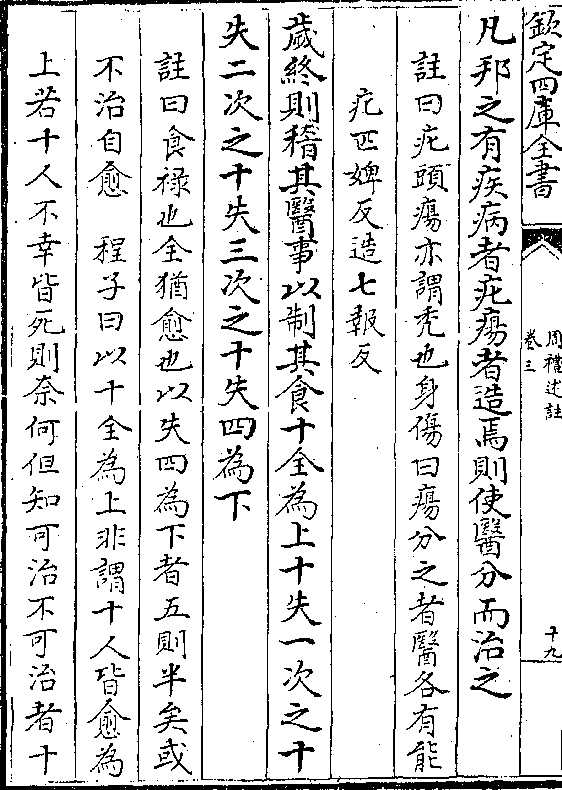 欽定四庫全書
周禮述註
卷三
十九
凡邦之有疾病者疕瘍者造焉則使醫分而治之
註曰疕頭瘍亦謂秃也身傷曰瘍分之者醫各有能
疕匹婢反造七報反
歲終則稽其醫事以制其食十全為上十失一次之十
失二次之十失三次之十失四為下
註曰食禄也全猶愈也以失四為下者五則半矣或
不治自愈　程子曰以十全為上非謂十人皆愈為
上若十人不幸皆死則奈何但知可治不可治者十